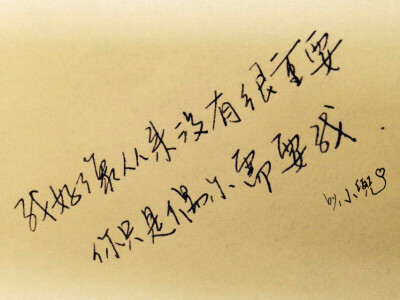 我好像从来没有很重要
你只是偶尔需要我.
by.小兜